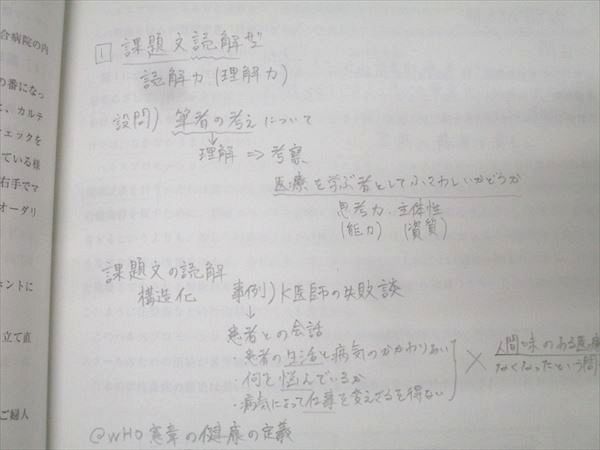 合病院の内
の番になっ
、カルテ
ェックを
ている様
右手でマ
オーダリ
ントに
立て直
ご婦人
1 課題文読解型
読解力(理解力)
設問) 筆者の考えについて
↓
理解 ⇒ 考察
医療を学ぶ者としてふさわしいかどうか
思考力・主体性
(能力) (資質)
課題文の読解
構造化 事例)K医師の失敗談
↓
患者との会話
・患者の生活と病気のかかわりあい
何を悩んでいるか
・病気によって仕事を変えざるを得ない
× 人間味のある医療
なくなったという問
@WHO憲章の健康の定義